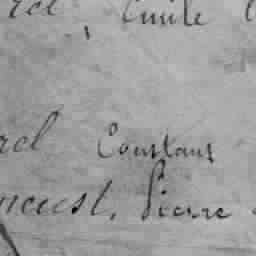 rel, Emile
rel Constant
ncest, Pierre